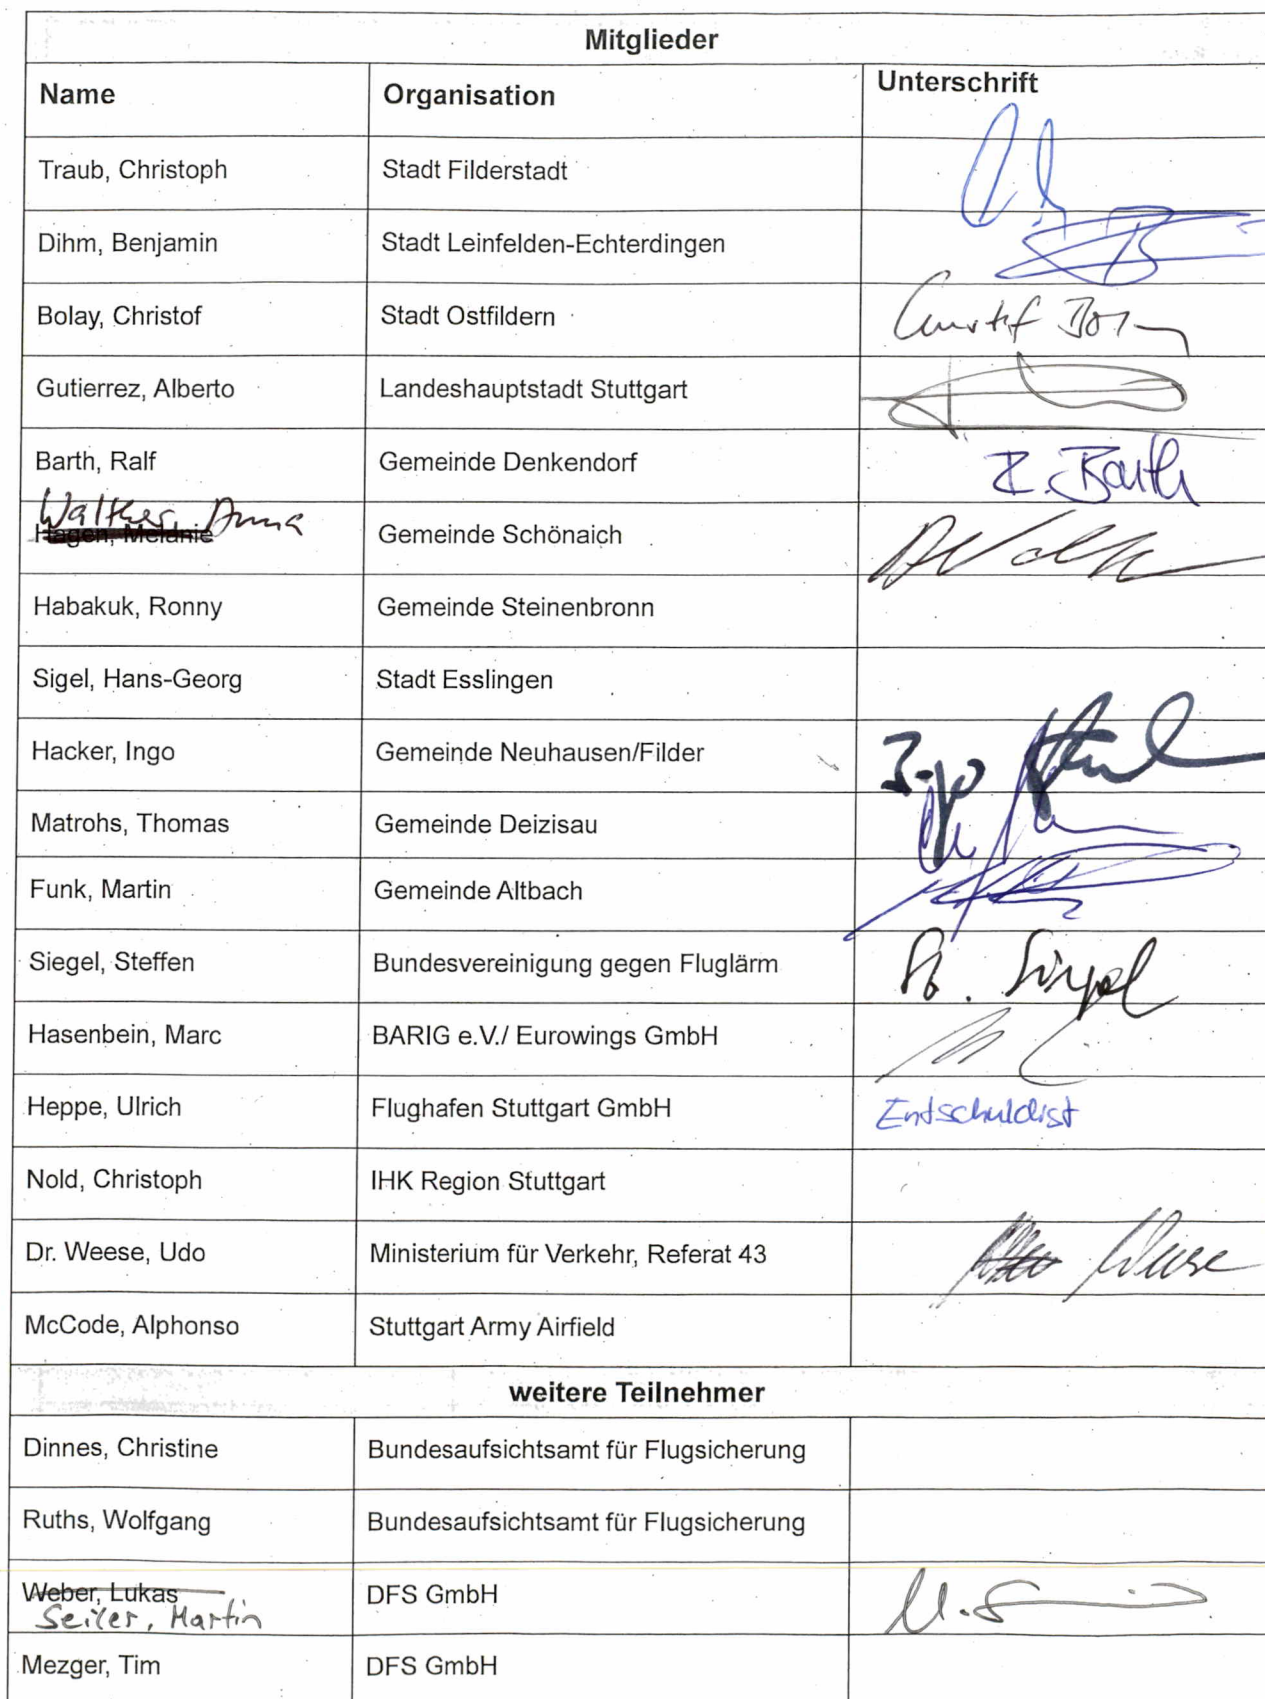 Mitglieder
Name Organisation Unterschrift
Traub, Christoph Stadt Filderstadt
Dihm, Benjamin Stadt Leinfelden-Echterdingen
Bolay, Christof Stadt Ostfildern
Gutierrez, Alberto Landeshauptstadt Stuttgart
Barth, Ralf Gemeinde Denkendorf R. Barth
Walther, Anna
Hagen, Melanie Gemeinde Schönaich
Habakuk, Ronny Gemeinde Steinenbronn
Sigel, Hans-Georg Stadt Esslingen
Hacker, Ingo Gemeinde Neuhausen/Filder Ingo
Matrohs, Thomas Gemeinde Deizisau
Funk, Martin Gemeinde Altbach
Siegel, Steffen Bundesvereinigung gegen Fluglärm St. Siegel
Hasenbein, Marc BARIG e.V./ Eurowings GmbH
Heppe, Ulrich Flughafen Stuttgart GmbH Entschuldigt
Nold, Christoph IHK Region Stuttgart
Dr. Weese, Udo Ministerium für Verkehr, Referat 43 Weese
McCode, Alphonso Stuttgart Army Airfield
weitere Teilnehmer
Dinnes, Christine Bundesaufsichtsamt für Flugsicherung
Ruths, Wolfgang Bundesaufsichtsamt für Flugsicherung
Weber, Lukas DFS GmbH
Seiler, Martin
Mezger, Tim DFS GmbH